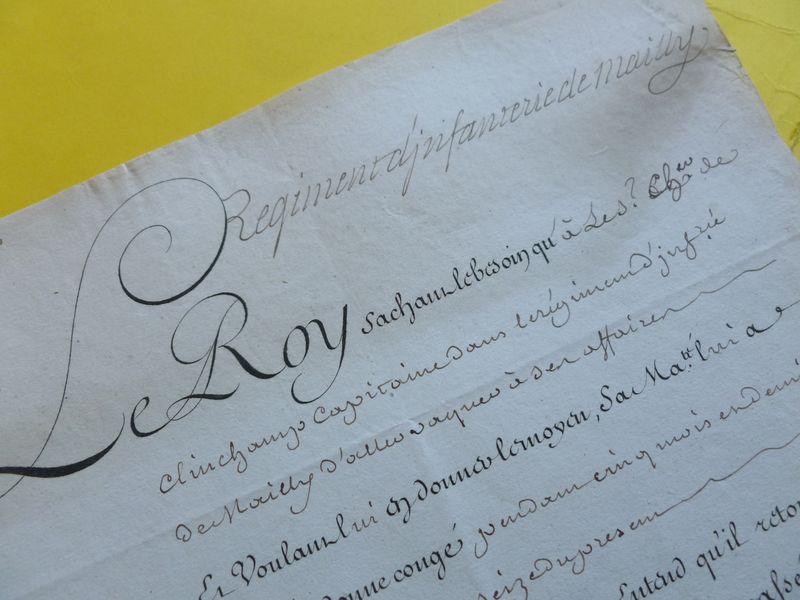 Regiment d'jnfanterie de Mailly
Le Roy sachant le besoin qu'à Le s.r Ch.er de
Clinchamp Capitaine dans le régiment d'jnf.rie
de Mailly d'aller vaquer à ses affaires
Et Voulant lui en donner le moyen, Sa Ma.té lui a
donné congé pendant cinq mois et demi
seize du present
Entend qu'il reto